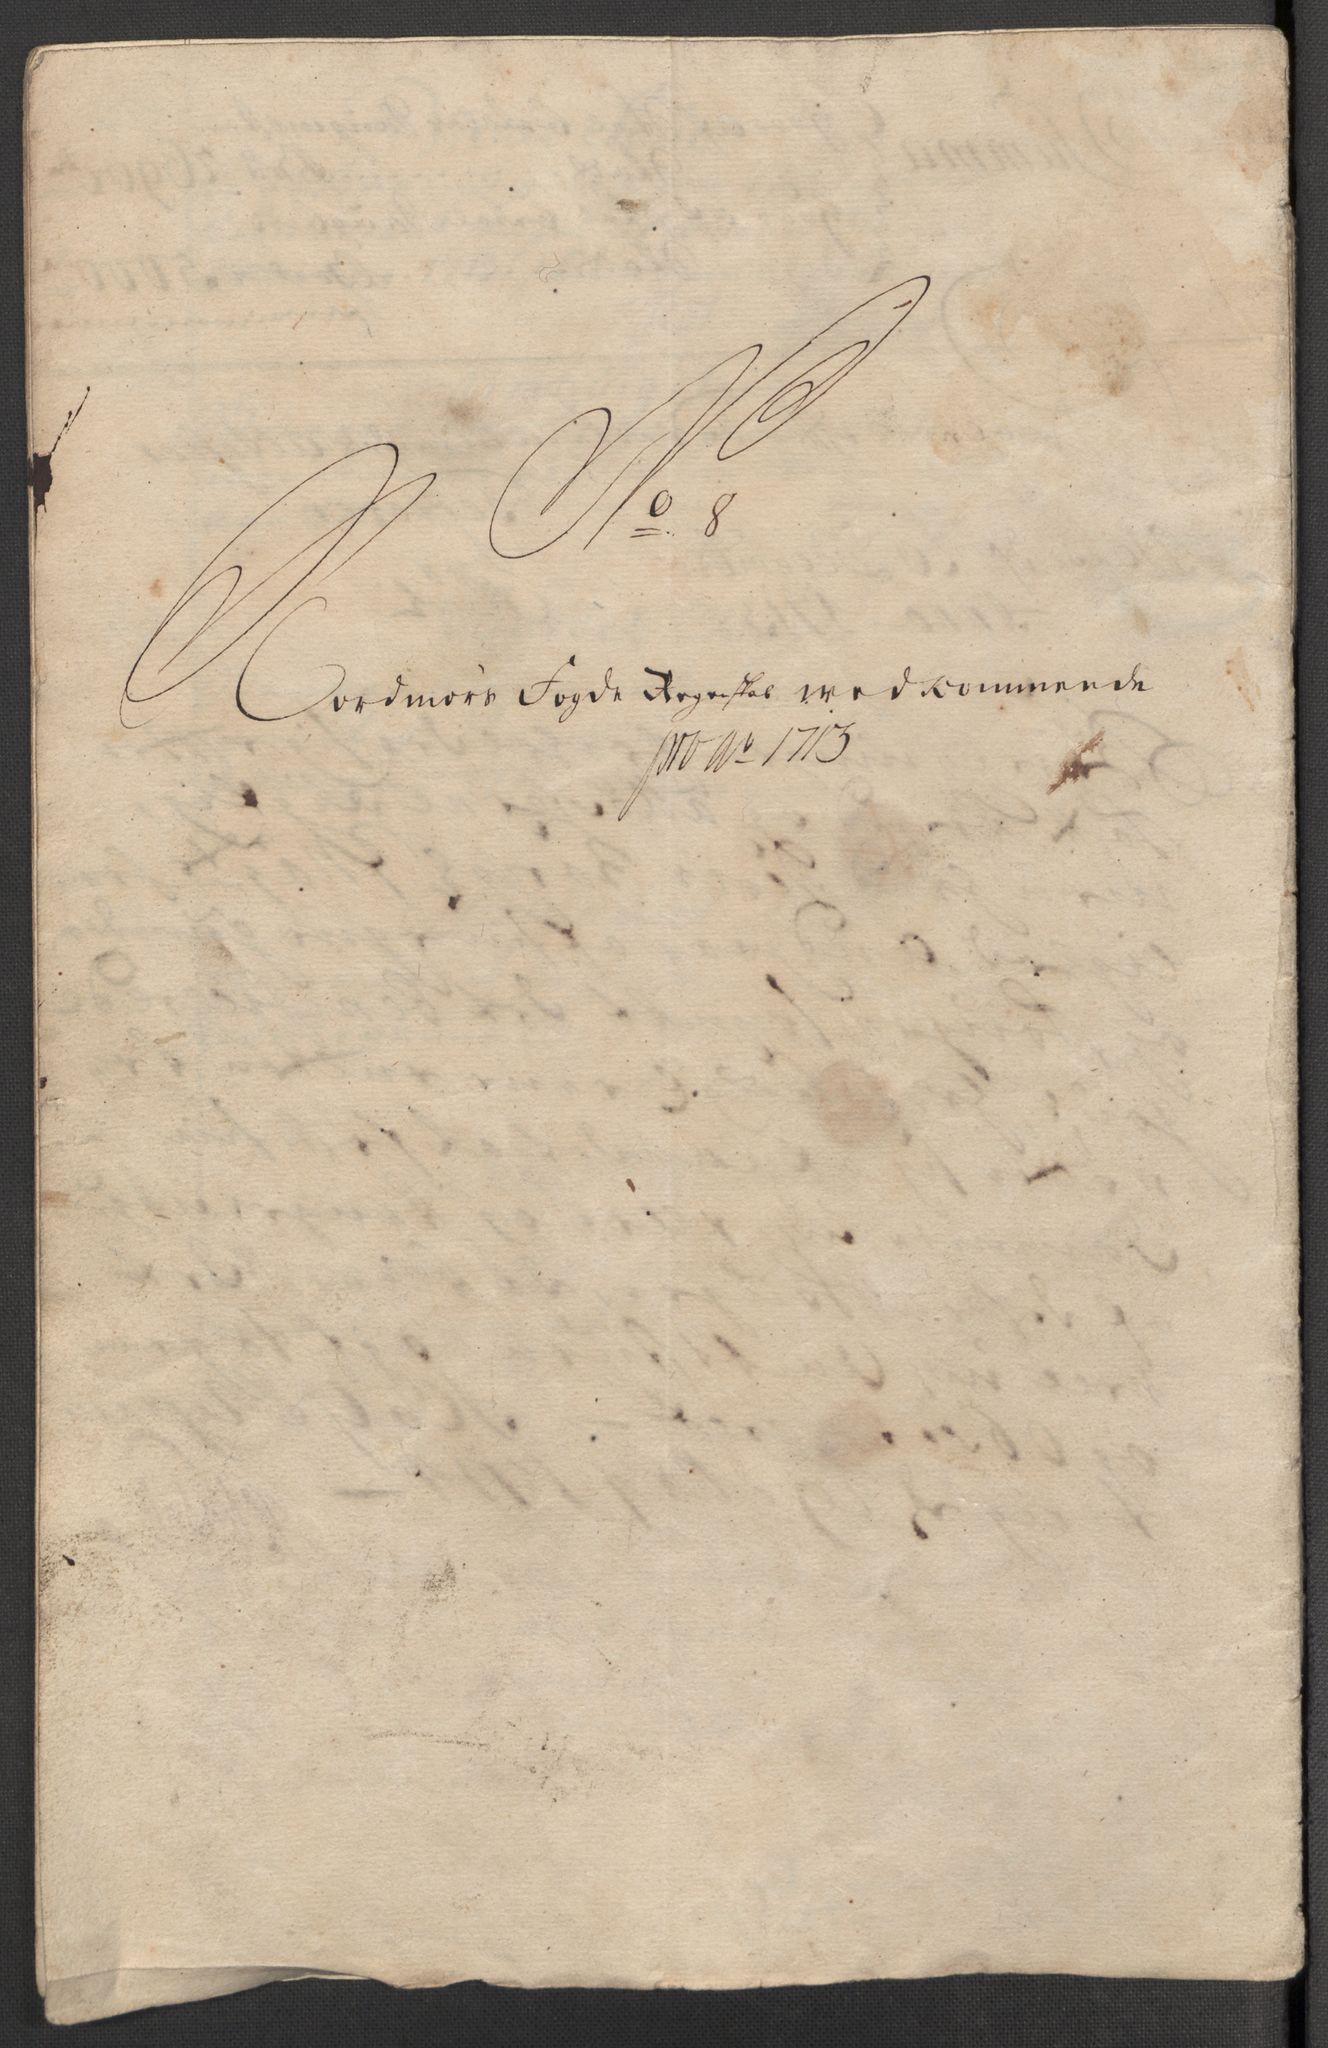 No. 8
Nordmørs Fogde Regenskab wedkommende
pro Ao 1713